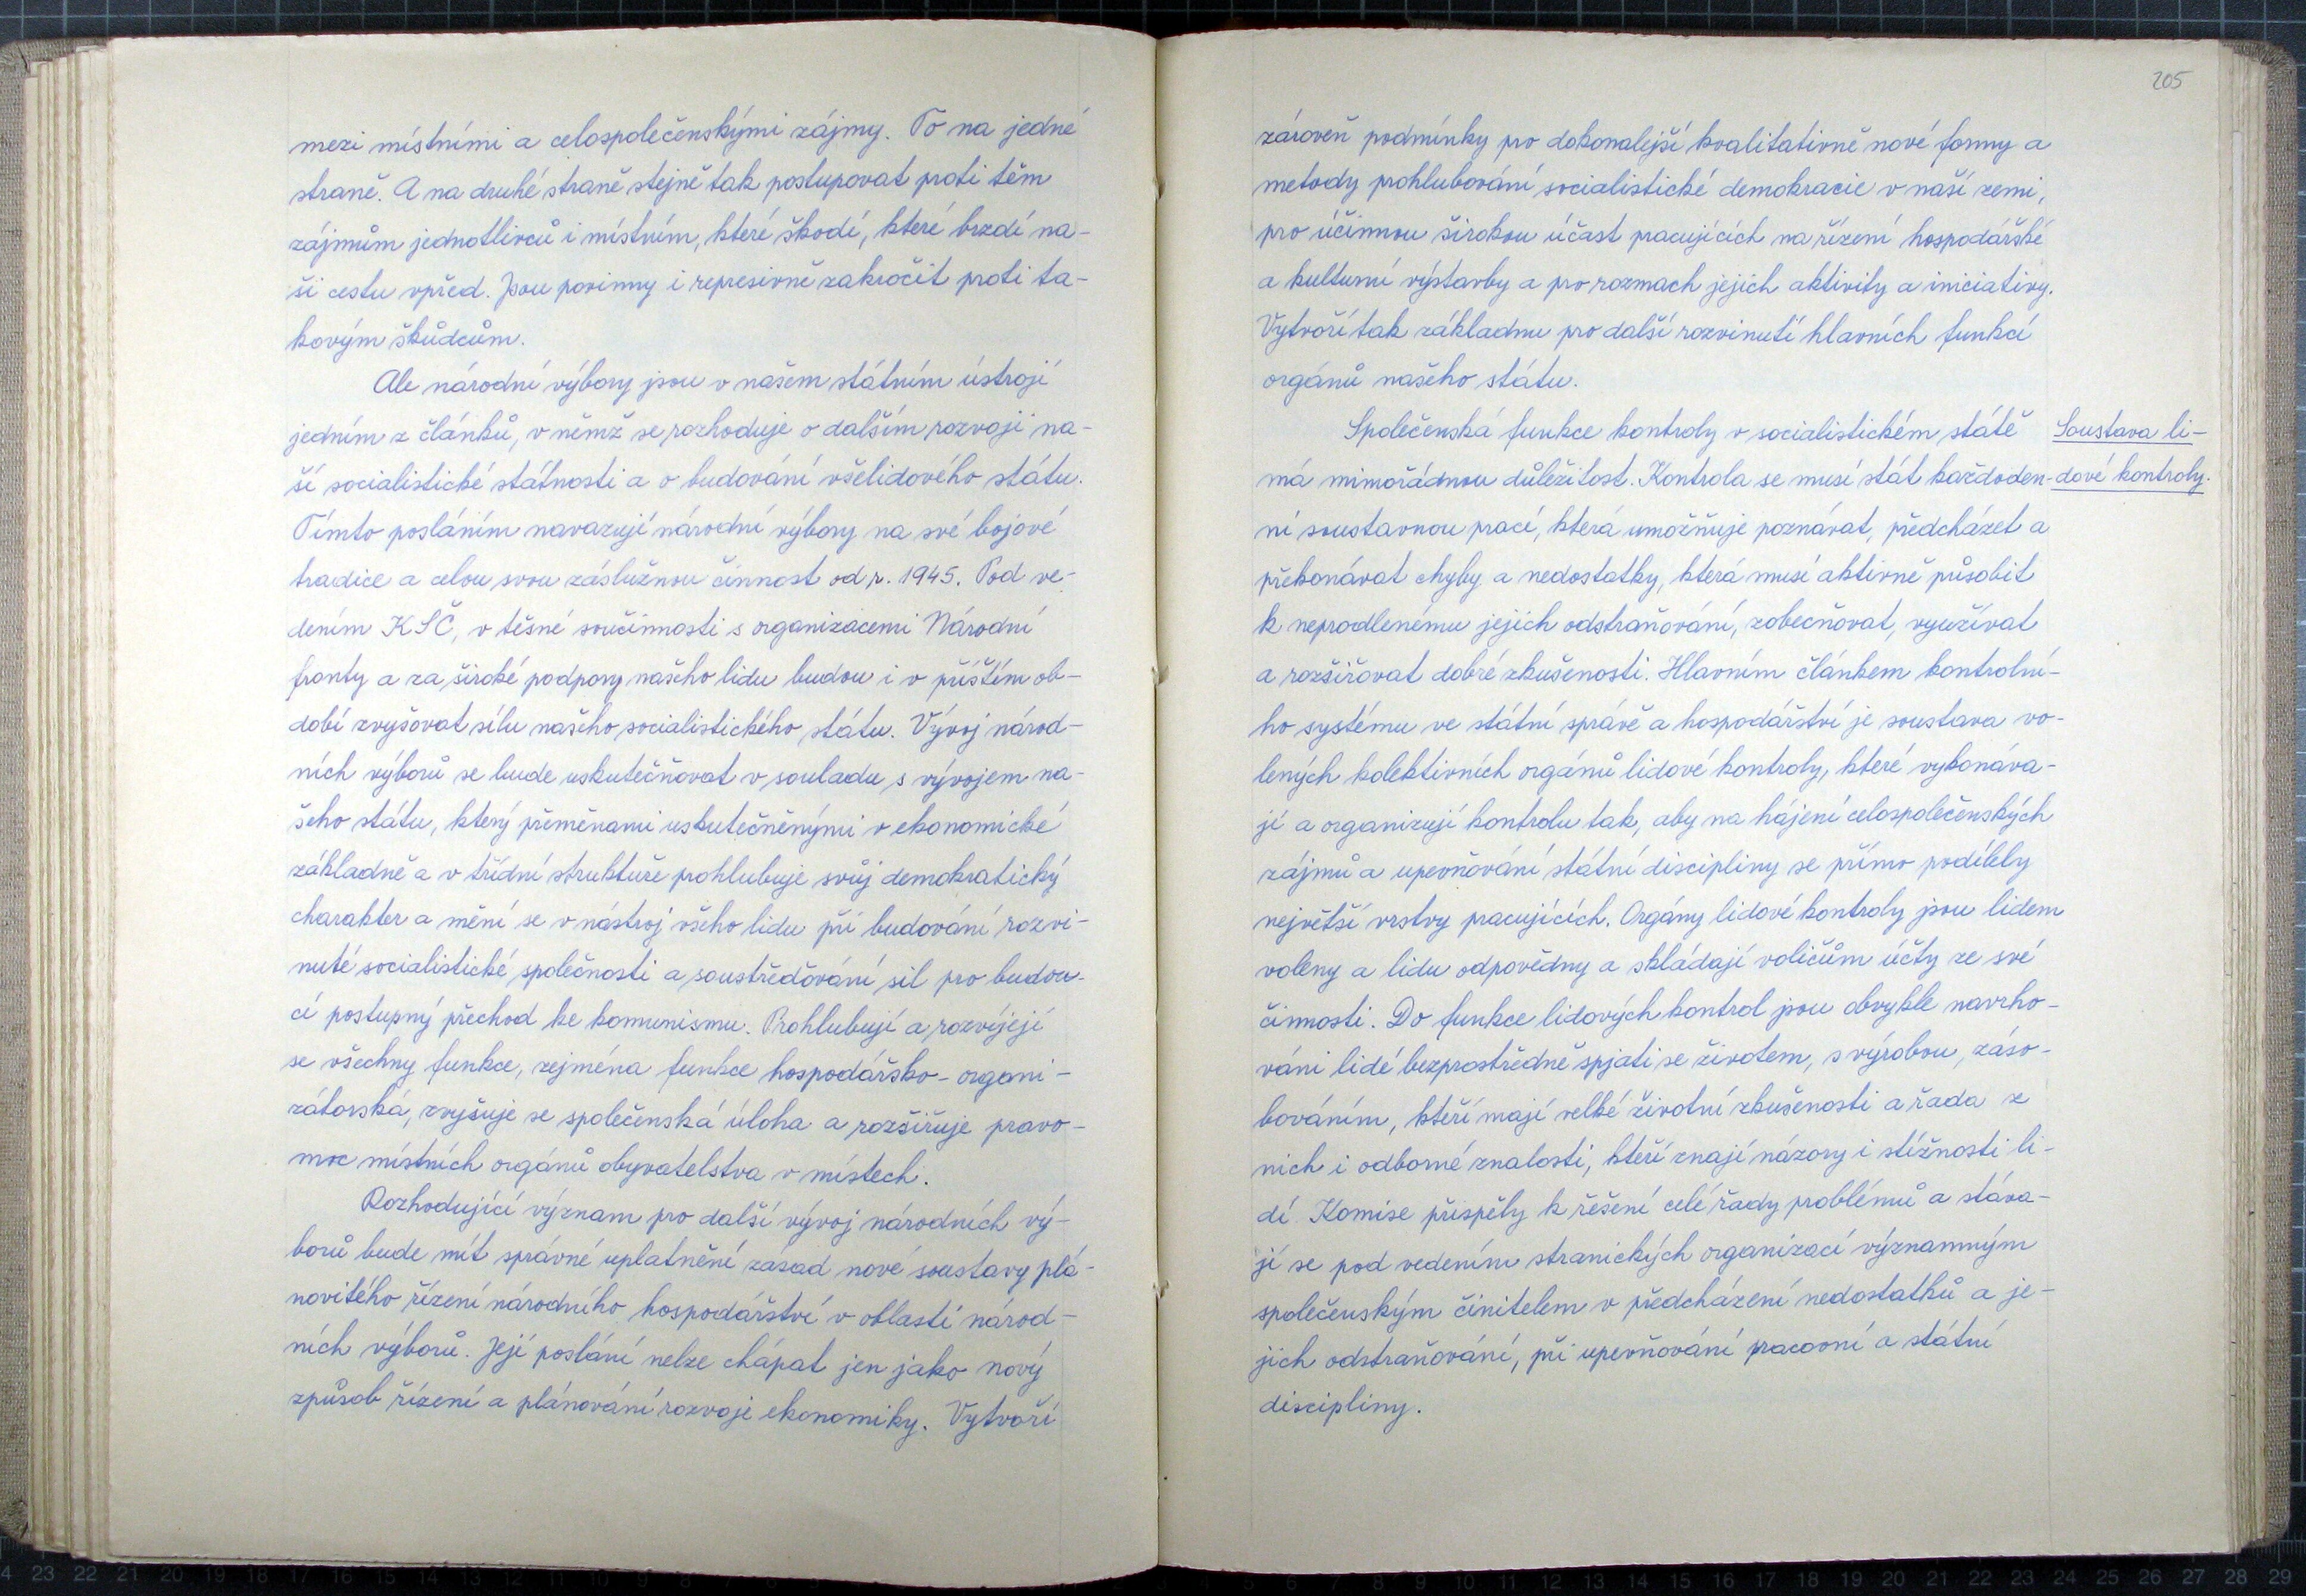 mezi místními a celospolečenskými zájmy. To na jedné
straně. A na druhé straně stejně tak postupovat proti těm
zájmům jednotlivců i místním, které škodí, které brzdí na-
ši cestu vpřed. Jsou povinny i represivně zakročit proti ta-
kovým škůdcům.
Ale národní výbory jsou v našem státním ústrojí
jedním z článků, v němž se rozhoduje o dalším rozvoji na-
ší socialistické státnosti a o budování všelidového státu.
Tímto posláním navazují národní výbory na své bojové
tradice a celou svou záslužnou činnost od r. 1945. Pod ve-
dením KSČ, v těsné součinnosti s organizacemi Národní
fronty a za široké podpory našeho lidu budou i v příštím ob-
dobí zvyšovat sílu našeho socialistického státu. Vývoj národ-
ních výborů se bude uskutečňovat v souladu s vývojem na-
šeho státu, který přeměnami uskutečněnými v ekonomické
základně a v třídní struktuře prohlubuje svůj demokratický
charakter a mění se v nástroj všeho lidu při budování rozvi-
nuté socialistické společnosti a soustřeďování sil pro budou-
cí postupný přechod ke komunismu. Prohlubují a rozvíjejí
se všechny funkce, zejména funkce hospodářsko-organi-
zátorská, zvyšuje se společenská úloha a rozšiřuje pravo-
moc místních orgánů obyvatelstva v místech.
Rozhodující význam pro další vývoj národních vý-
borů bude mít správné uplatnění zásad nové soustavy plá-
novitého řízení národního hospodářství v oblasti národ-
ních výborů. Její poslání nelze chápat jen jako nový
způsob řízení a plánování rozvoje ekonomiky. Vytvoří
205
zároveň podmínky pro dokonalejší kvalitativně nové formy a
metody prohlubování socialistické demokracie v naší zemi,
pro účinnou širokou účast pracujících na řízení hospodářské
a kulturní výstavby a pro rozmach jejich aktivity a iniciativy.
Vytvoří tak základnu pro další rozvinutí hlavních funkcí
orgánů našeho státu.
Společenská funkce kontroly v socialistickém státě
má mimořádnou důležitost. Kontrola se musí stát každoden-
ní soustavnou prací, která umožňuje poznávat, předcházet a
překonávat chyby a nedostatky, která musí aktivně působit
k neprodlenému jejich odstraňování, zobecňovat, využívat
a rozšiřovat dobré zkušenosti. Hlavním článkem kontrolní-
ho systému ve státní správě a hospodářství je soustava vo-
lených kolektivních orgánů lidové kontroly, které vykonáva-
jí a organizují kontrolu tak, aby na hájení celospolečenských
zájmů a upevňování státní discipliny se přímo podílely
největší vrstvy pracujících. Orgány lidové kontroly jsou lidem
voleny a lidu odpovědny a skládají voličům účty ze své
činnosti. Do funkce lidových kontrol jsou obvykle navrho-
váni lidé bezprostředně spjati se životem, s výrobou, záso-
bováním, kteří mají velké životní zkušenosti a řada z
nich i odborné znalosti, kteří znají názory i stížnosti li-
dí Komise přispěly k řešení celé řady problémů a stáva-
jí se pod vedením stranických organizací významným
společenským činitelem v předcházení nedostatků a je-
jich odstraňování, při upevňování pracovní a státní
discipliny.
Soustava li-
dové kontroly.